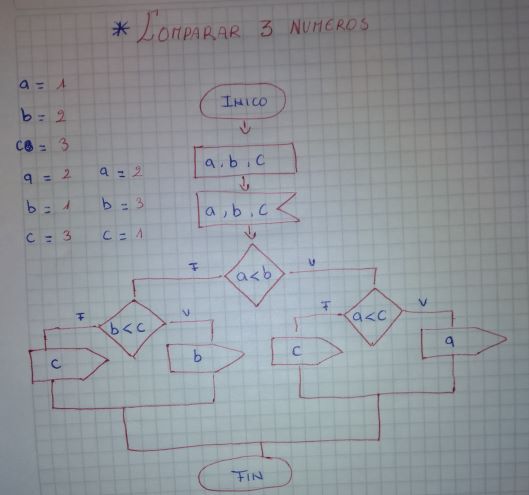 * COMPARAR 3 NUMEROS
a = 1
b = 2
c = 3
a = 2 a = 2
b = 1 b = 3
c = 3 c = 1
INICO
a, b, c
a, b, c
a<b
F V
b<c
F V
a<c
F V
c
b
c
a
FIN